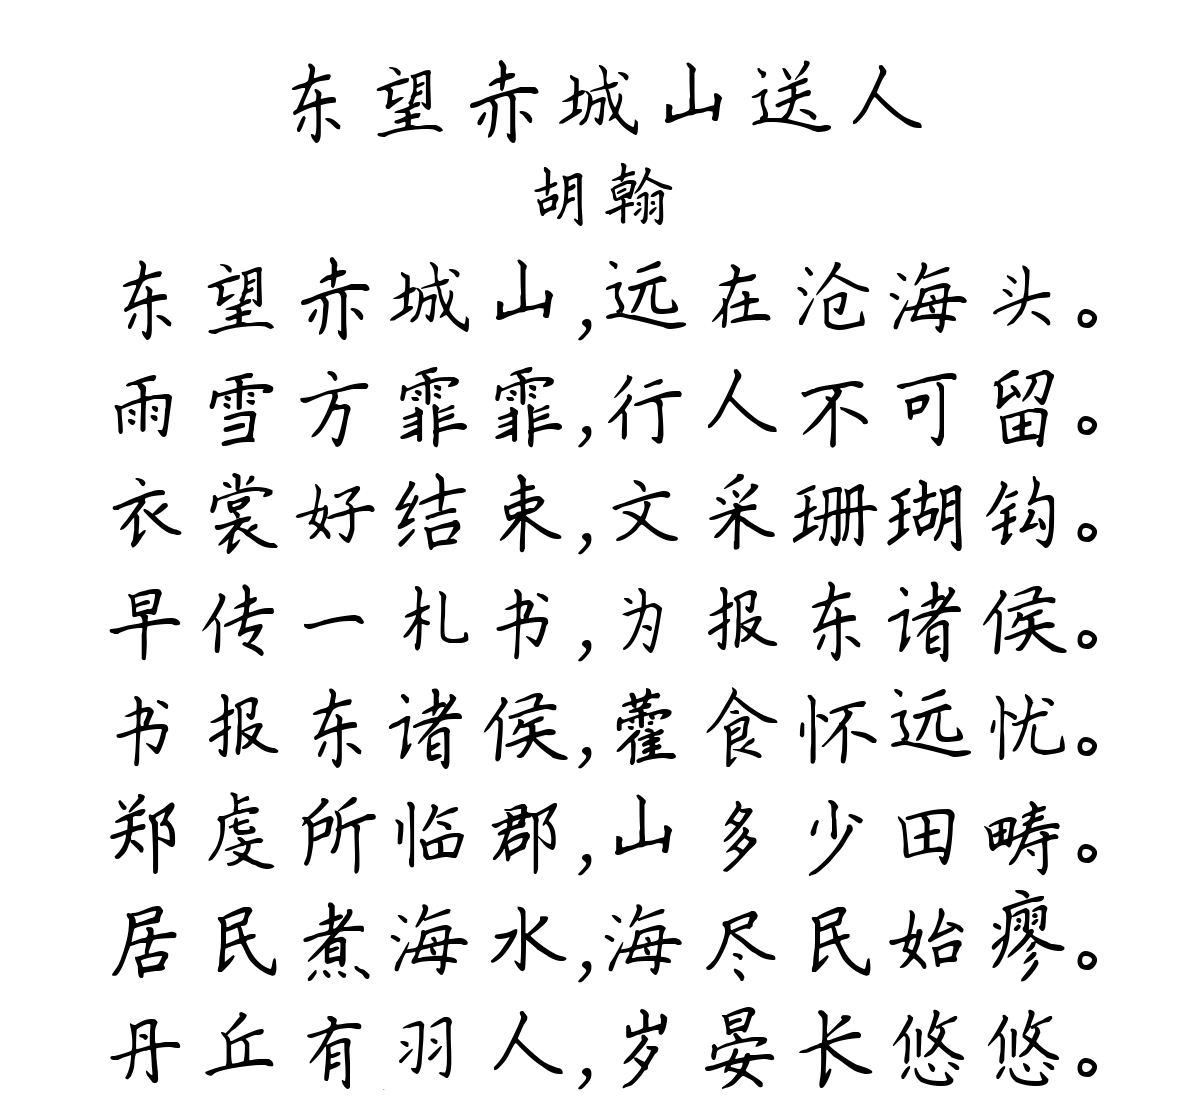 东望赤城山送人
胡翰
东望赤城山,远在沧海头。
雨雪方霏霏,行人不可留。
衣裳好结束,文采珊瑚钩。
早传一札书,为报东诸侯。
书报东诸侯,藿食怀远忧。
郑虔所临郡,山多少田畴。
居民煮海水,海尽民始瘳。
丹丘有羽人,岁晏长悠悠。